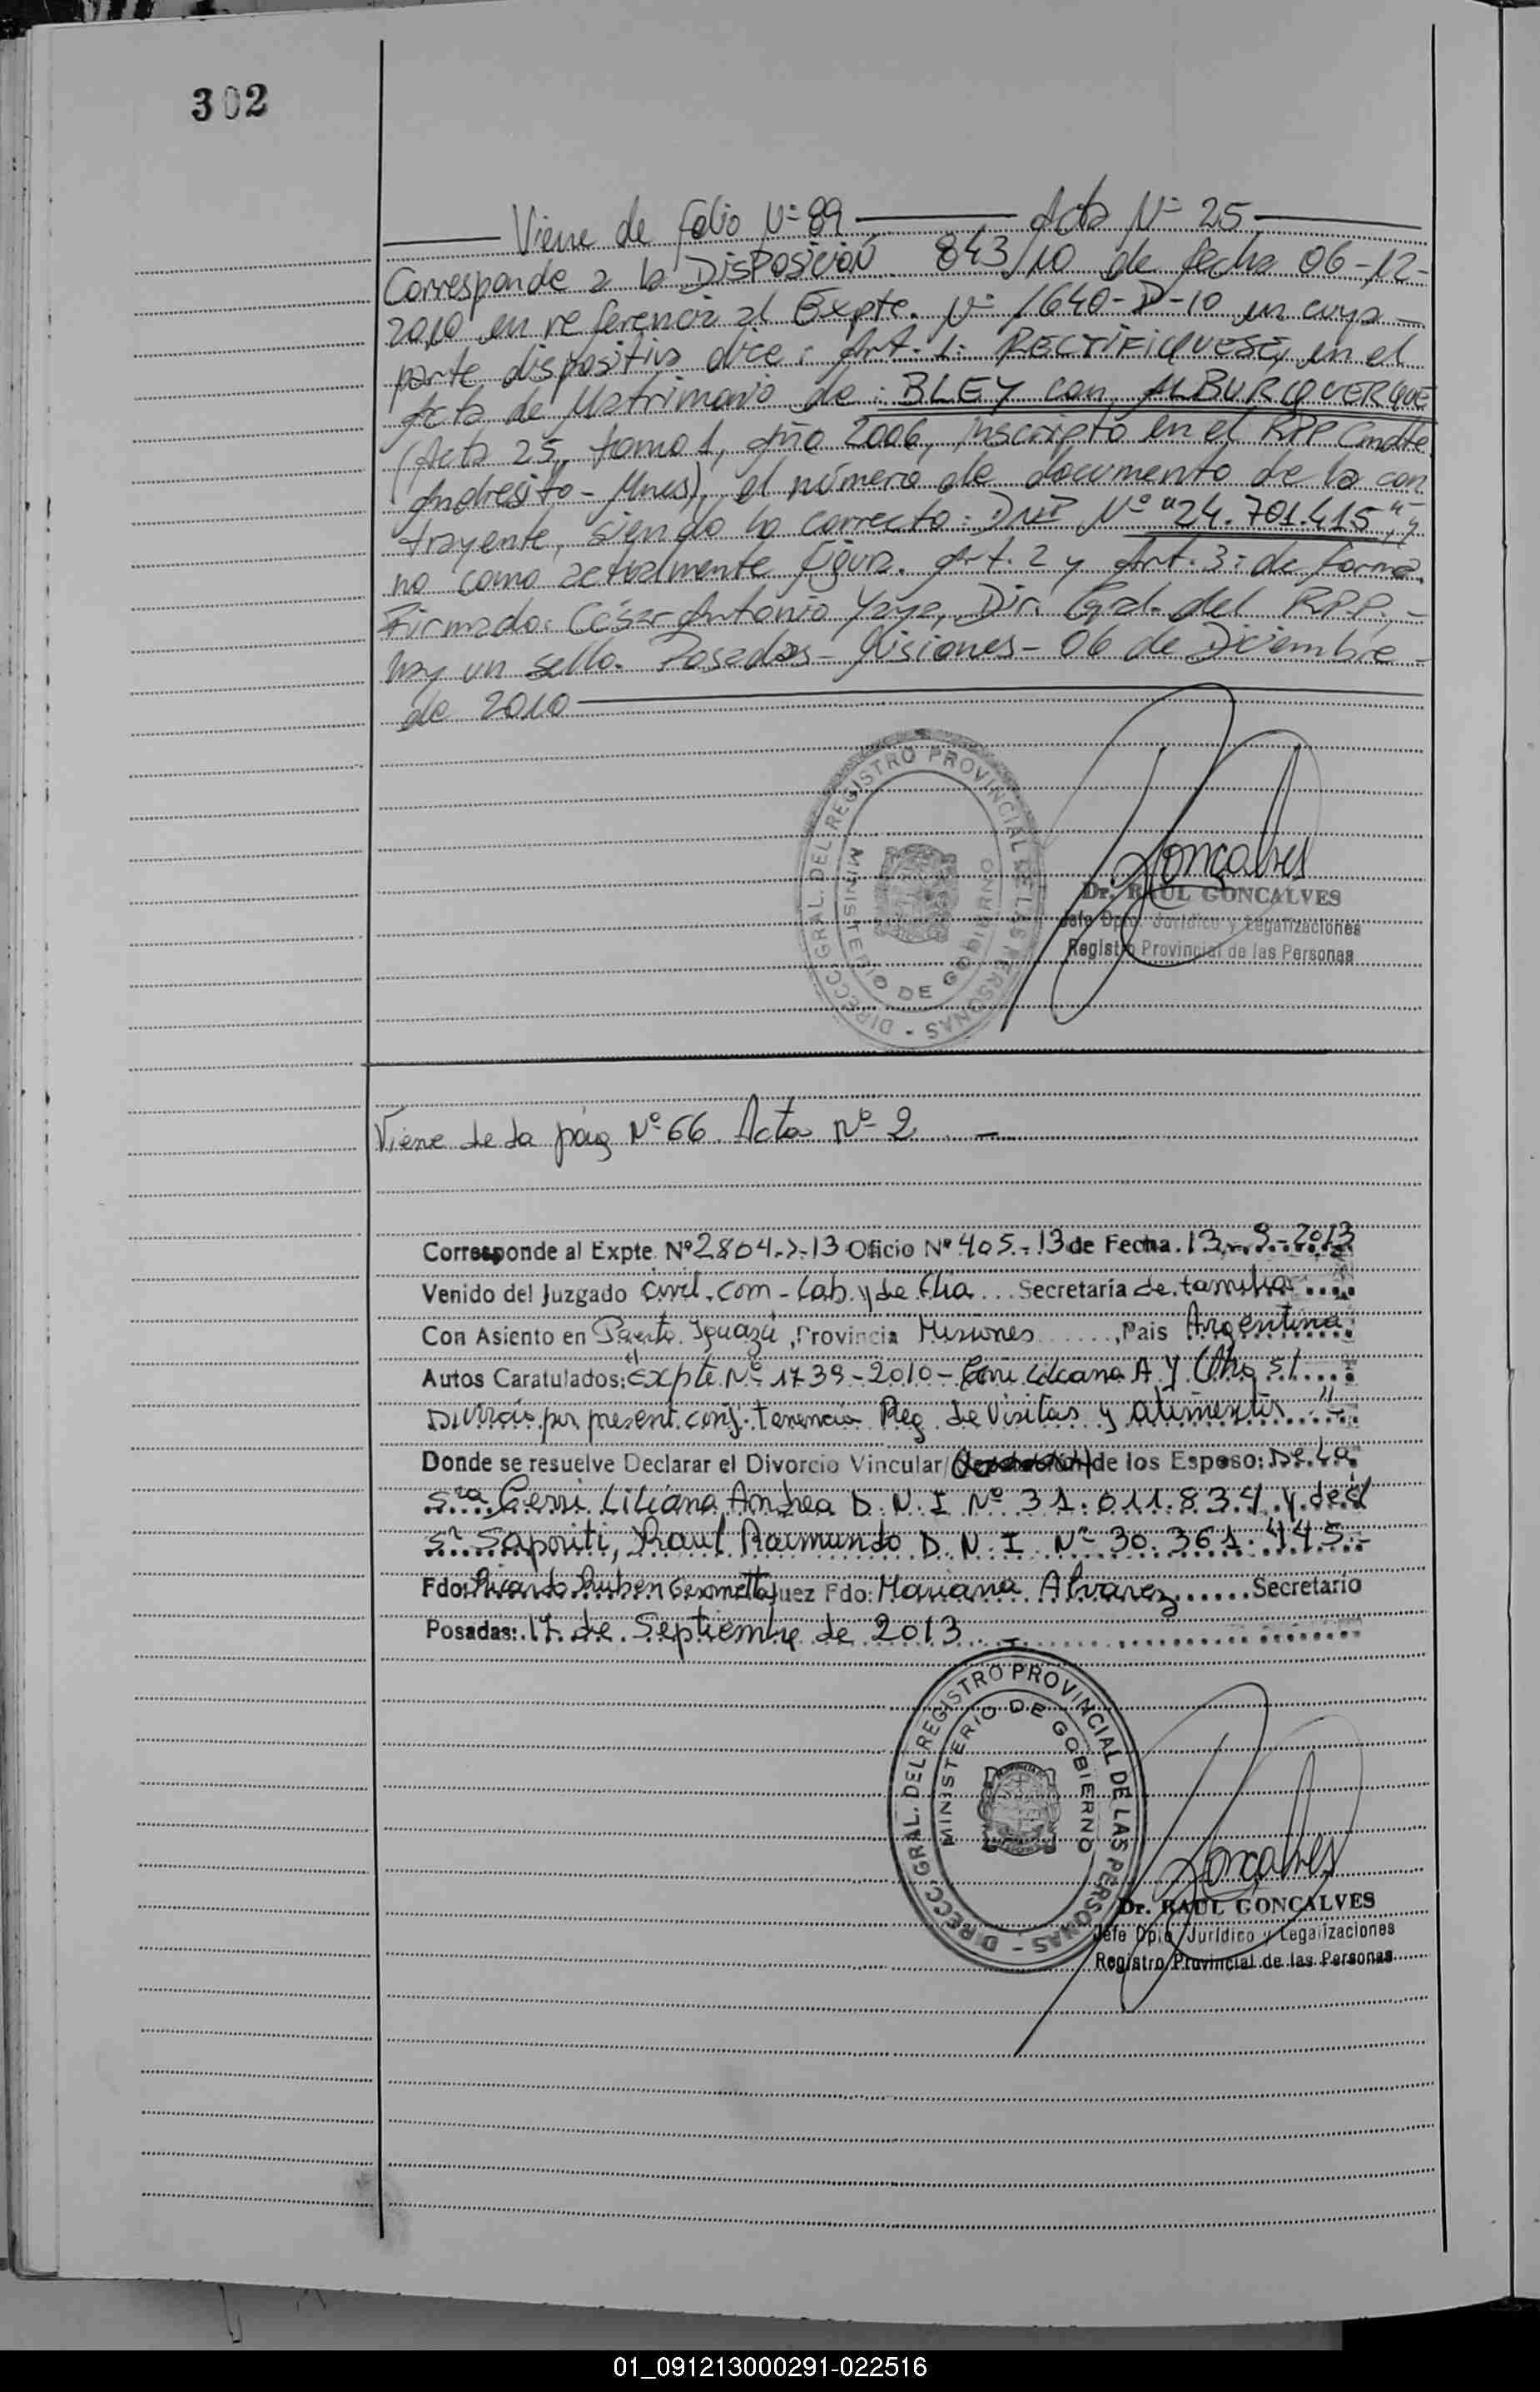 302
Viene de folio Nº 89 Acta Nº 25
Corresponde a la DISPOSICIÓN 843/10 de fecha 06-12-
2010 en referencia al Expte. Nº 1640-D-10 en cuya
parte dispositiva dice: Art. 1: RECTIFIQUESE, en el
Acta de Matrimonio de: BLEY con ALBURQUERQUE
(Acta 25, tomo 1, año 2006, inscripto en el RPP Cmdte
Andresito - Mnes), el número de documento de la con
trayente, siendo lo correcto: DNI Nº "24.701.415" y
no como actualmente figura. Art. 2 y Art. 3: de forma.
Firmado: César Antonio Yaya, Dir. Gral. del R.P.P.,
hay un sello. Posadas - Misiones - 06 de Diciembre
de 2010
DIRECC. GRAL. DEL REGISTRO PROVINCIAL DE LAS PERSONAS -
MINISTERIO DE GOBIERNO
Goncalves
Dr. RAUL GONCALVES
Jefe Dpto. Jurídico y Legalizaciones
Registro Provincial de las Personas
Viene de la pág Nº 66 Acta Nº 2
Corresponde al Expte. Nº 2804-J-13 Oficio Nº 405-13 de Fecha 13-9-2013
Venido del Juzgado Civil. Com - Lab. y de Flia Secretaría de familia
Con Asiento en Puerto Iguazú, Provincia Misiones, Pais Argentina
Autos Caratulados: "Expte. Nº 1739-2010- Liliana A. y Otro s/
Divorcio por present. conj. tenencia Reg. de Visitas y alimentos"
Donde se resuelve Declarar el Divorcio Vincular/ de los Esposo: De La
Sra. Liliana Andrea D.N.I Nº 31.011.834 y del
Sr. Saporiti, Raul Raimundo D.N.I Nº 30.361.445.-
Fdo: Ricardo Ruben Juez Fdo: Mariana Alvarez Secretario
Posadas: 17 de Septiembre de 2013
DIRECC. GRAL. DEL REGISTRO PROVINCIAL DE LAS PERSONAS -
MINISTERIO DE GOBIERNO
Goncalves
Dr. RAUL GONCALVES
Jefe Dpto. Jurídico y Legalizaciones
Registro Provincial de las Personas
01_091213000291-022516